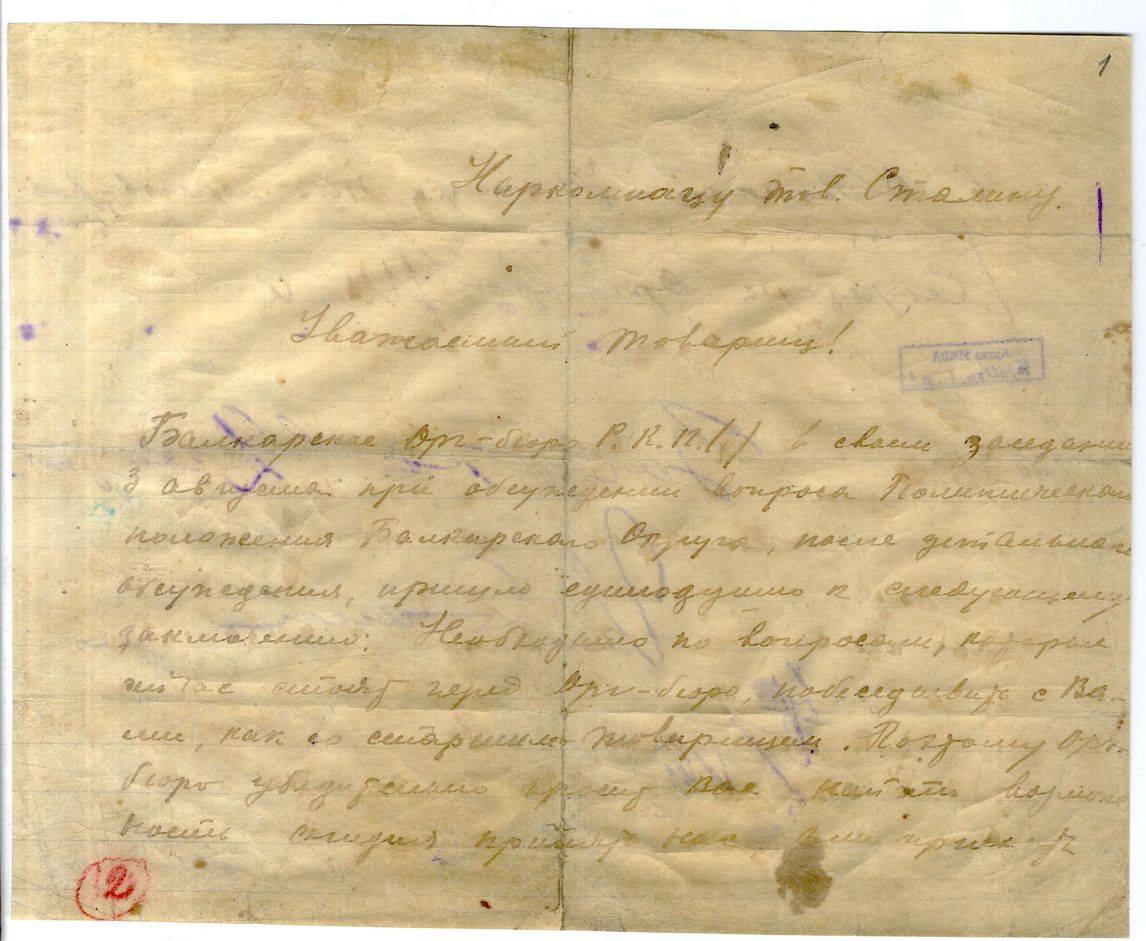 1
Наркомнацу тов. Сталину.
Уважаемый товарищ!
Балкарское Орг-бюро Р.К.П.(б) в своем заседании
3 августа при обсуждении вопроса Политического
положения Балкарского Округа, после детального
обсуждения, пришло единодушно к следующему
заключению: Необходимо по вопросам, которые
сейчас стоят перед Орг-бюро, побеседовать с Ва-
ми, как со старшим товарищем. Поэтому Орг-
бюро убедительно просит Вас найти возмож-
ность сегодня принять нас, или
2